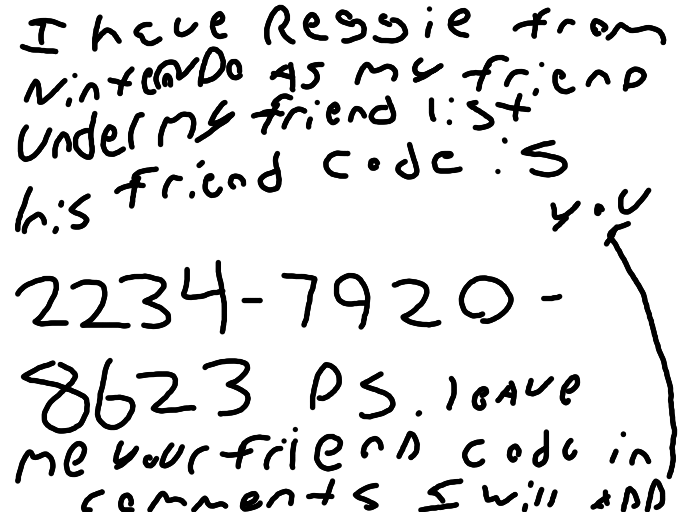 I have Reggie from
NintenDo AS my frienD
Under my friend list
his friend code is
2234-7920-
8623 PS. leave
me your frienD code in
comments I will ADD
you